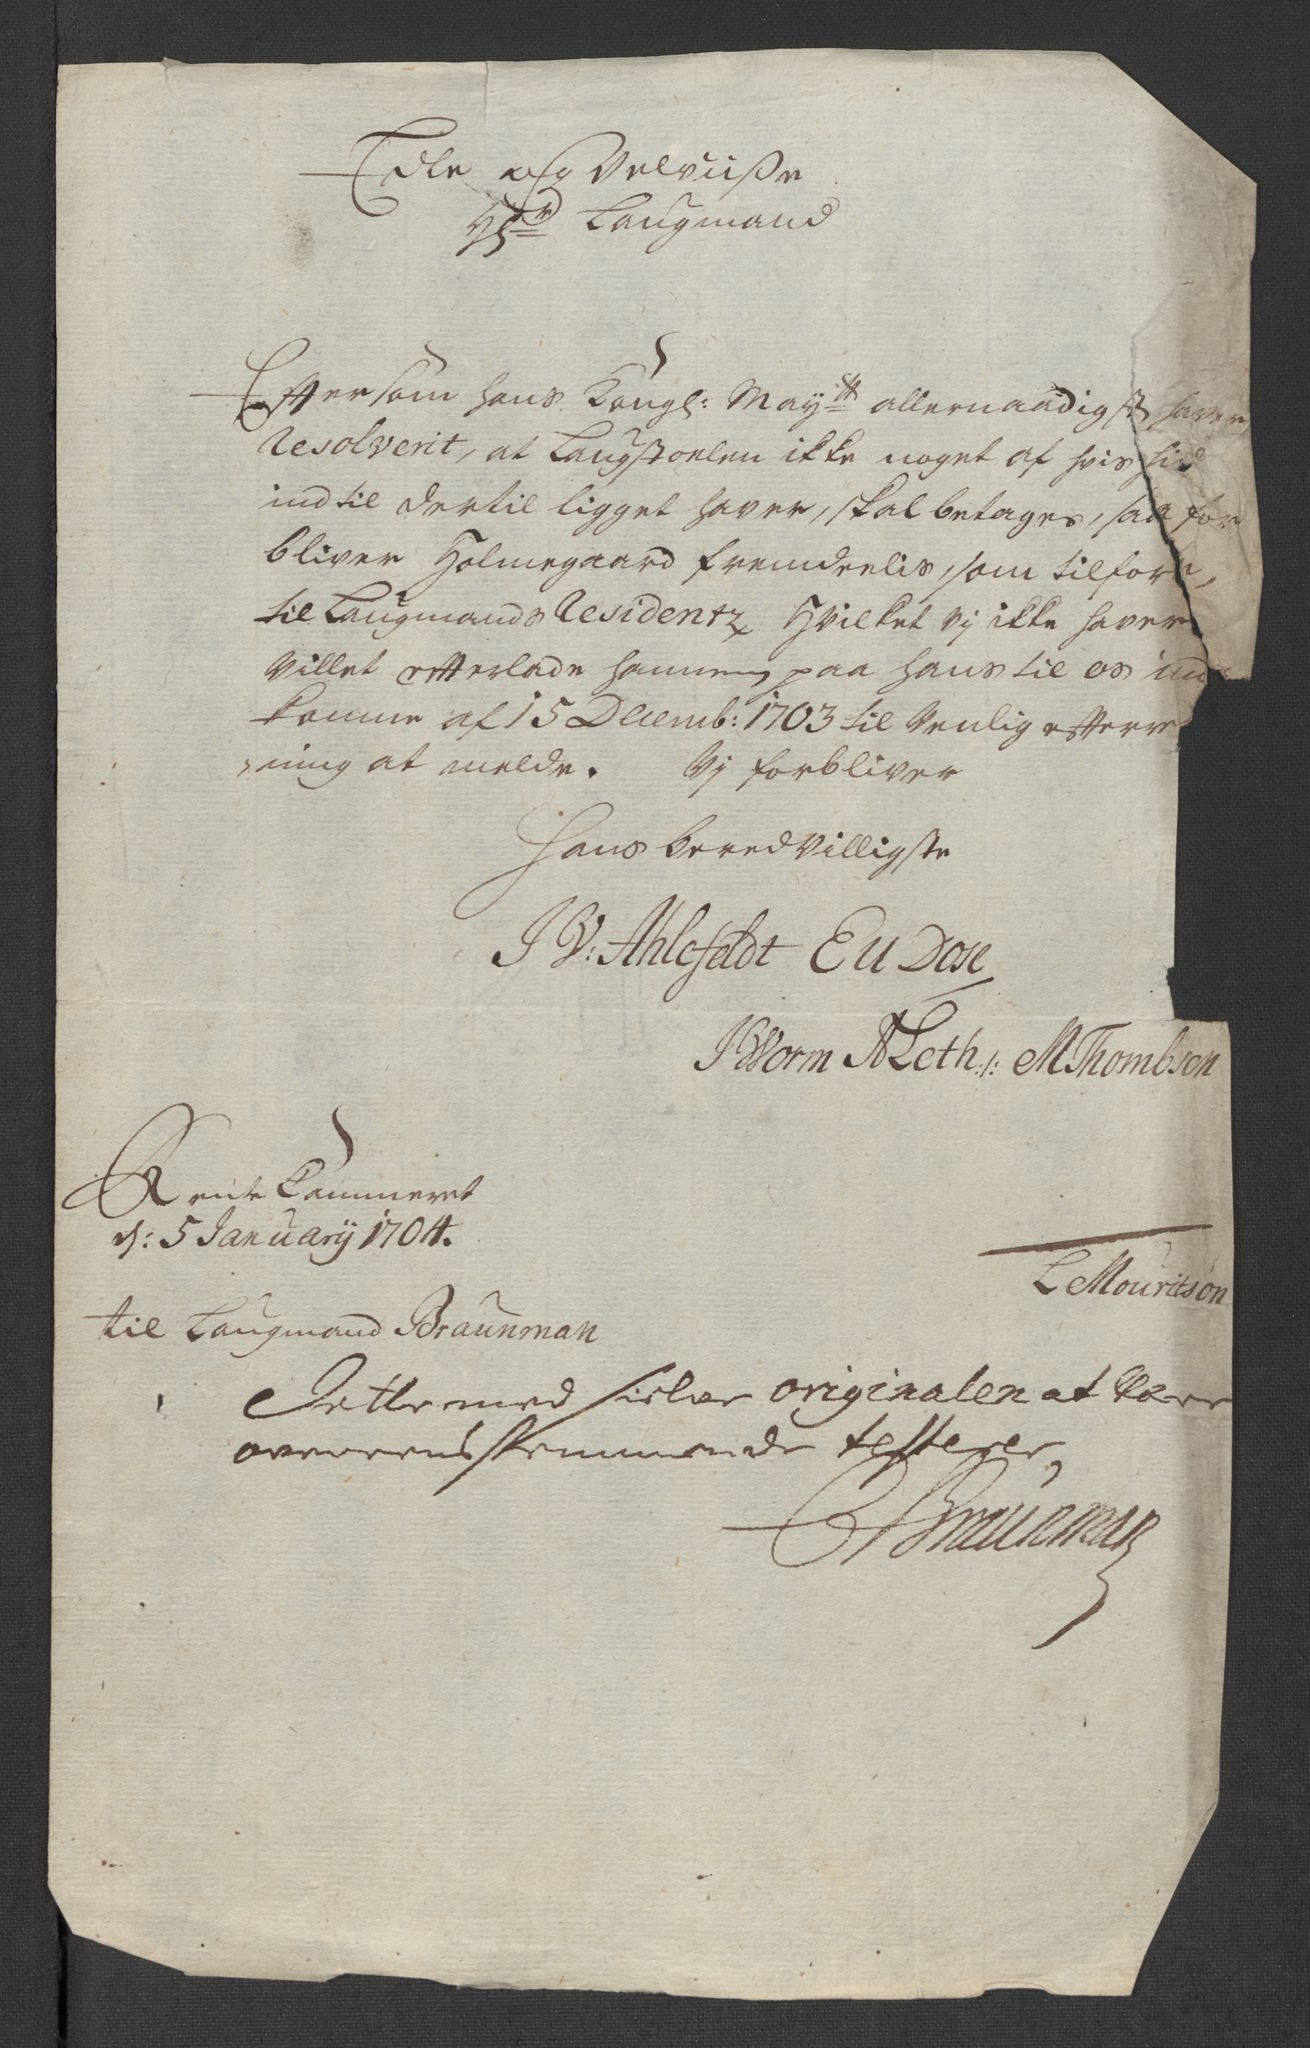 Edle og Velviise
Hr Laugmand
Effter som hans Kongl: Maytt allernaadigst haver
Resolverit, at Laugstoelen ikke noget af hvis hid
indtil dertil ligget haver, skal betages, saa for
bliver Holmegaard fremdeelis, som tilforn,
til Laugmands Residentz, Hvilket vj ikke haver
villet efterlade hannem paa hans til os ind
komne af 15 Decemb: 1703 til Venlig efterre
ning at melde. Vj forbliver
Hans beredvilligste
J V: Ahlefeldt CU Dose
J Worm A Leth :/: M Thombsen
Rente Cammeret
d: 5 January 1704.
L Mouritson
til Laugmand Braunman
Dette med sielve originalen at være
overeensskommende testerer,
Braunman